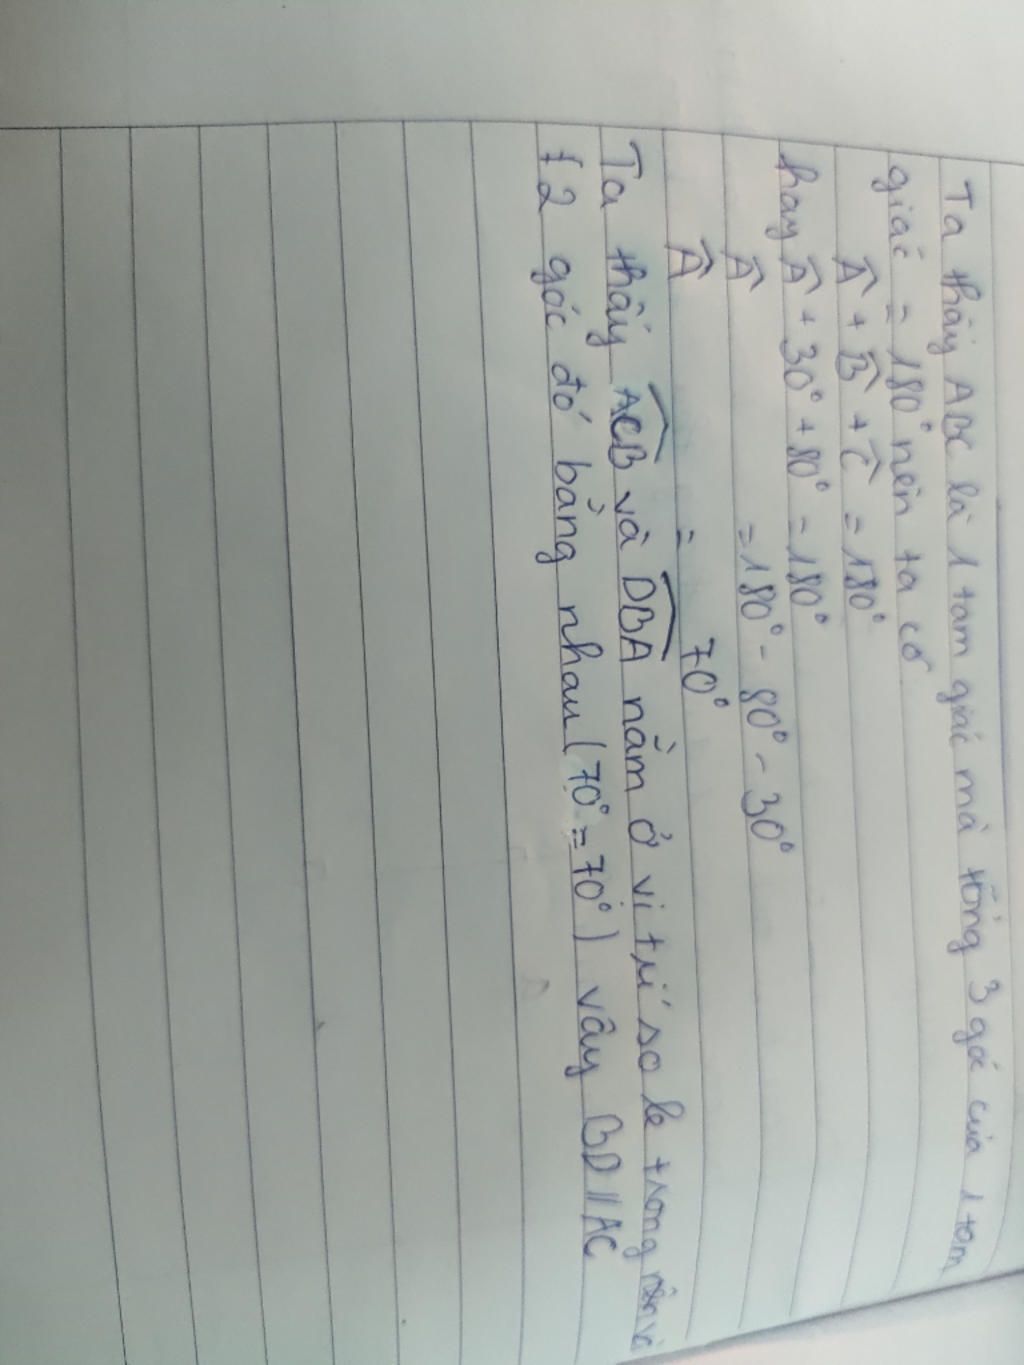 Ta thấy ABC là 1 tam giác mà tổng 3 góc của 1 tam
giác = 180° nên ta có
Â + B̂ + Ĉ = 180°
hay Â + 30° + 80° = 180°
Â = 180° - 80° - 30°
Â = 70°
Ta thấy ACB và DBA nằm ở vị trí so le trong nên và
2 góc đó bằng nhau (70° = 70°) vây BD // AC